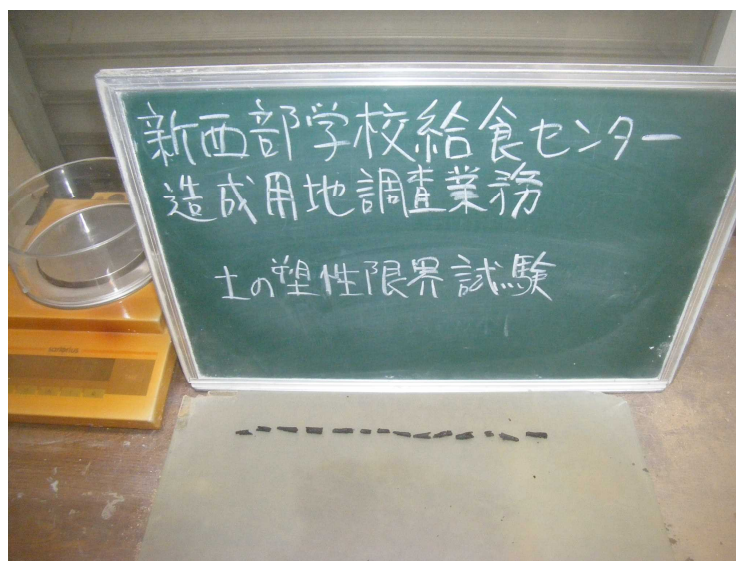 新西部学校給食センター
造成用地調査業務
土の塑性限界試験